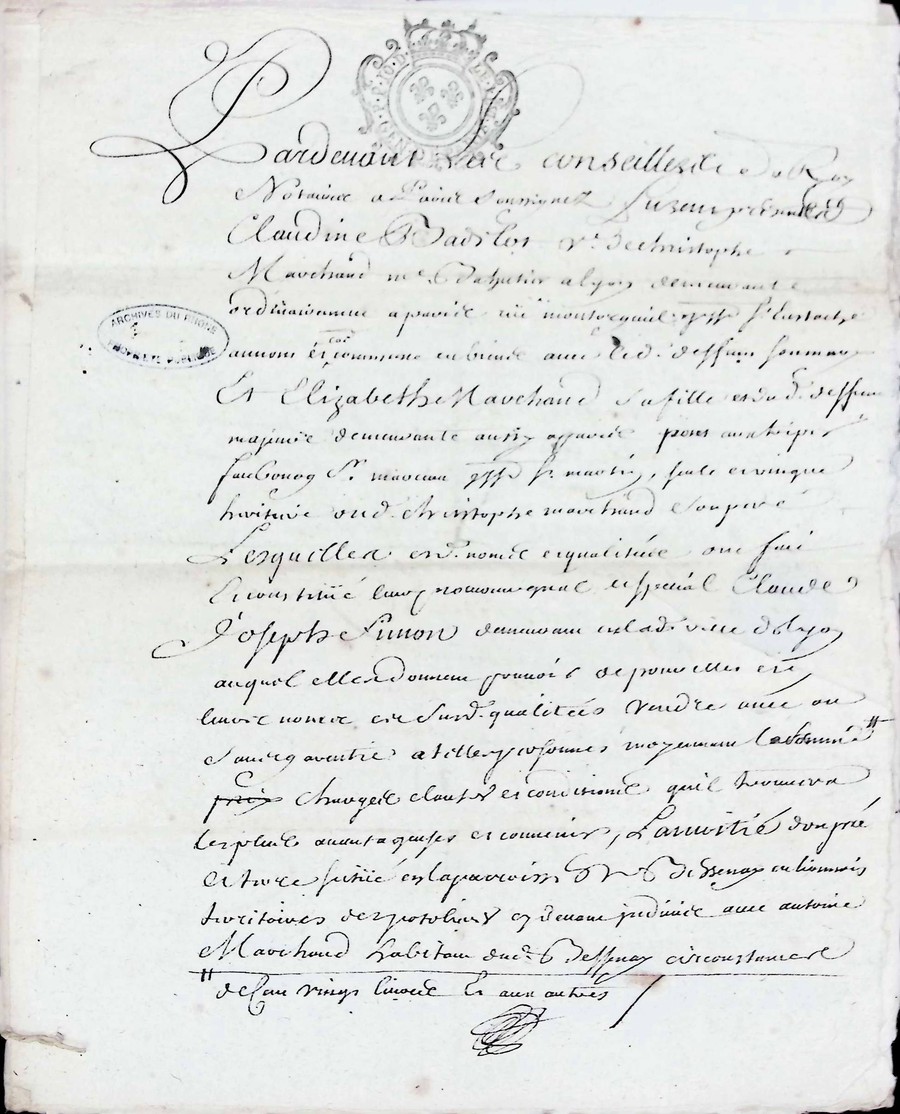 Pardevant les conseillers du Roy
Notaires a Paris soussignez furent presentes
Claudine Badilos v.e de christophe
Marchand m.e Bahutier a lyon demeurante
ordinairement a paris rüe montorgueil psse St Eustache
commune en biens avec led. deffunt
Et Elizabeth Marchand sa fille et dud. deffunt
majeure demeurante aussy a paris
faubourg St. marceau psse St. martin, seule et unique
heritiere dud. christophe marchand son pere
Lesquelles esd. noms et qualitées ont fait
et constitué leur procureur general et special Claude
Joseph Simon demeurant en la de ville de lyon
auquel elles donnent pouvoir de pour elles et
leurs noms et susd. qualitées vendre avec ou
sans garentie a telles personnes moyennant la somme "
prix charges clauses et conditions quil trouvera
les plus avantageuses et convenir, La moitié d'un pré
et terre situé en la parroisse de Bessenay en lionnois
territoires de et devant indivis avec antoine
Marchand habitant dud. Bessenay circonstances
" de Cent vingt livres Et aux autres
ARCHIVES DU RHONE
PROPRIETE PUBLIQUE